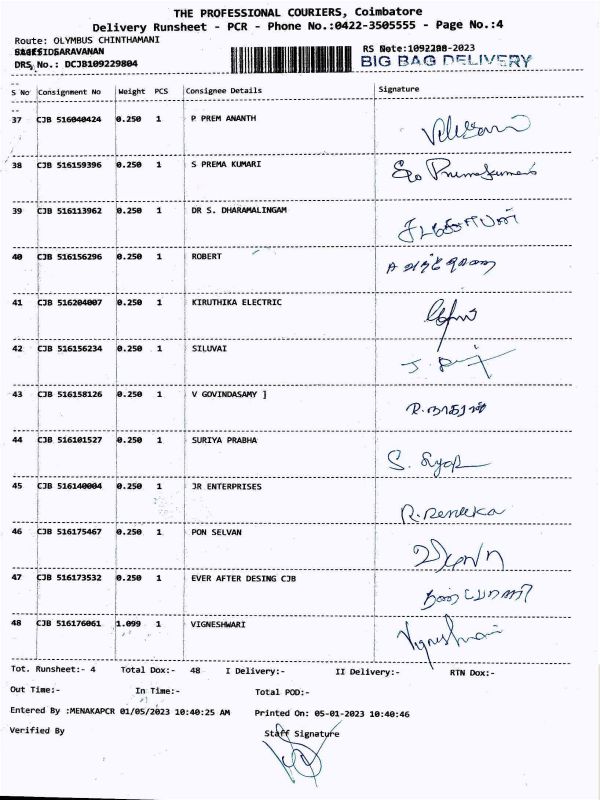 THE PROFESSIONAL COURIERS, Coimbatore
Delivery Runsheet - PCR - Phone No.:0422-3505555 - Page No.:4
Route: OLYMBUS CHINTHAMANI
RS Note:1092288-2023
DRS No.: DCJB109229804
BIG BAG DELIVERY
S No Consignment No Weight PCS Consignee Details Signature
37 CJB 516040424 0.250 1 P PREM ANANTH
38 CJB 516159396 0.250 1 S PREMA KUMARI
39 CJB 516113962 0.250 1 DR S. DHARAMALINGAM
40 CJB 516156296 0.250 1 ROBERT
41 CJB 516204007 0.250 1 KIRUTHIKA ELECTRIC
42 CJB 516156234 0.250 1 SILUVAI
43 CJB 516158126 0.250 1 V GOVINDASAMY ]
44 CJB 516101527 0.250 1 SURIYA PRABHA
45 CJB 516140004 0.250 1 JR ENTERPRISES R. Renuka
46 CJB 516175467 0.250 1 PON SELVAN
47 CJB 516173532 0.250 1 EVER AFTER DESING CJB
48 CJB 516176061 1.099 1 VIGNESHWARI
Tot. Runsheet:- 4 Total Dox:- 48 I Delivery:- II Delivery:- RTN Dox:-
Out Time:- In Time:- Total POD:-
Entered By :MENAKAPCR 01/05/2023 10:40:25 AM Printed On: 05-01-2023 10:40:46
Verified By Staff Signature